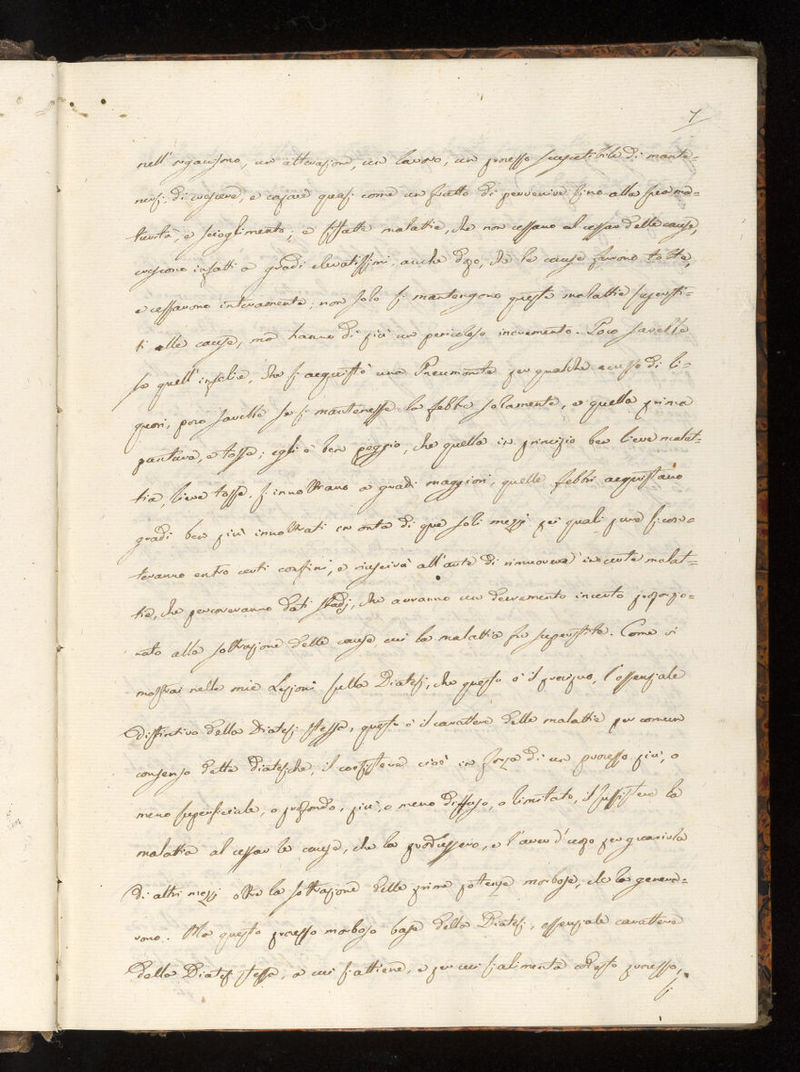 7
nell' organismo, un' alterazione, un lavoro, un processo suscettibile di mante-
nersi, di crescere, e cosare quasi come un frutto di pervenire fino alla sua ma-
turità, e scioglimento; e siffatte malattie, che non cessano al cessar delle cause,
crescono infatti a gradi elevatissimi, anche dopo, che le cause furono tolte,
e cessarono interamente; non solo si mantengono queste malattie supersti-
ti alle cause, ma hanno di più un pericoloso incremento. Poco sarebbe
se quell' infelice, che si acquistò una Pneumonite per qualche eccesso di li-
quori, poco sarebbe se si mantenesse la febbre solamente, e quella prima
puntura, e tosse; egli è ben peggio, che quella in principio ben lieve malat-
tia, lieve tosse, s' innoltrano a gradi maggiori, quelle febbri acquistano
gradi ben più innoltrati in onta di que' soli mezzi pei quali pure si con-
terranno entro certi confini, e riuscirà all' arte di rimuovere in certe malat-
tie, che percorreranno dati stadj, che avranno un decremento in certo proporzio-
nato alla sottrazione delle cause cui la malattia fu superstite. Come vi
mostrai nelle mie Lezioni sulla Diatesi, che questo è il precipuo, l' essenziale
distintivo della Diatesi stessa, questo è il carattere delle malattie per comun
consenso dette diatesiche, il consistere cioè in forza di un processo più, o
meno superficiale, o profondo, più, o meno diffuso, o limitato, il sussistere la
malattia al cessar le cause, che la produssero, e l' aver d' uopo per guarirla
di altri mezzi oltre la sottrazione delle prime potenze morbose, che la genera-
rono. Ma questo processo morboso base della Diatesi, essenziale carattere
della Diatesi stessa, a cui si attiene, e per cui si alimenta codesto processo,